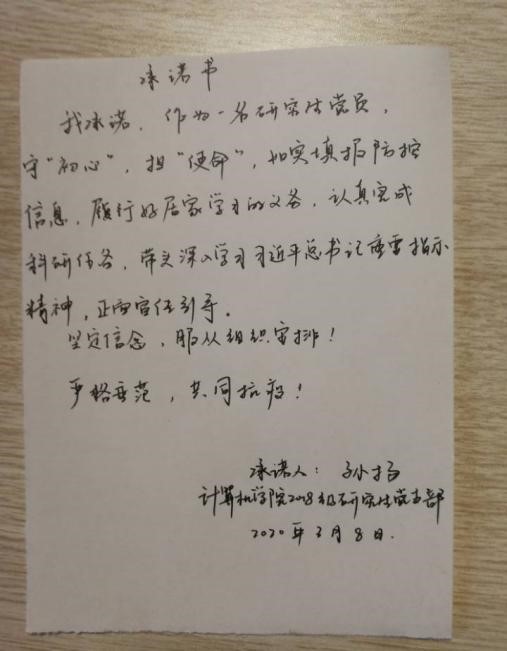 承诺书
我承诺，作为一名研究生党员，
守“初心”，担“使命”，如实填报防控
信息，履行好居家学习的义务，认真完成
科研任务，带头深入学习习近平总书记重要指示
精神，正面宣传引导。
坚定信念，服从组织安排！
严格垂范，共同抗疫！
承诺人：孙扬
计算机学院2018级研究生党支部
2020年3月8日.